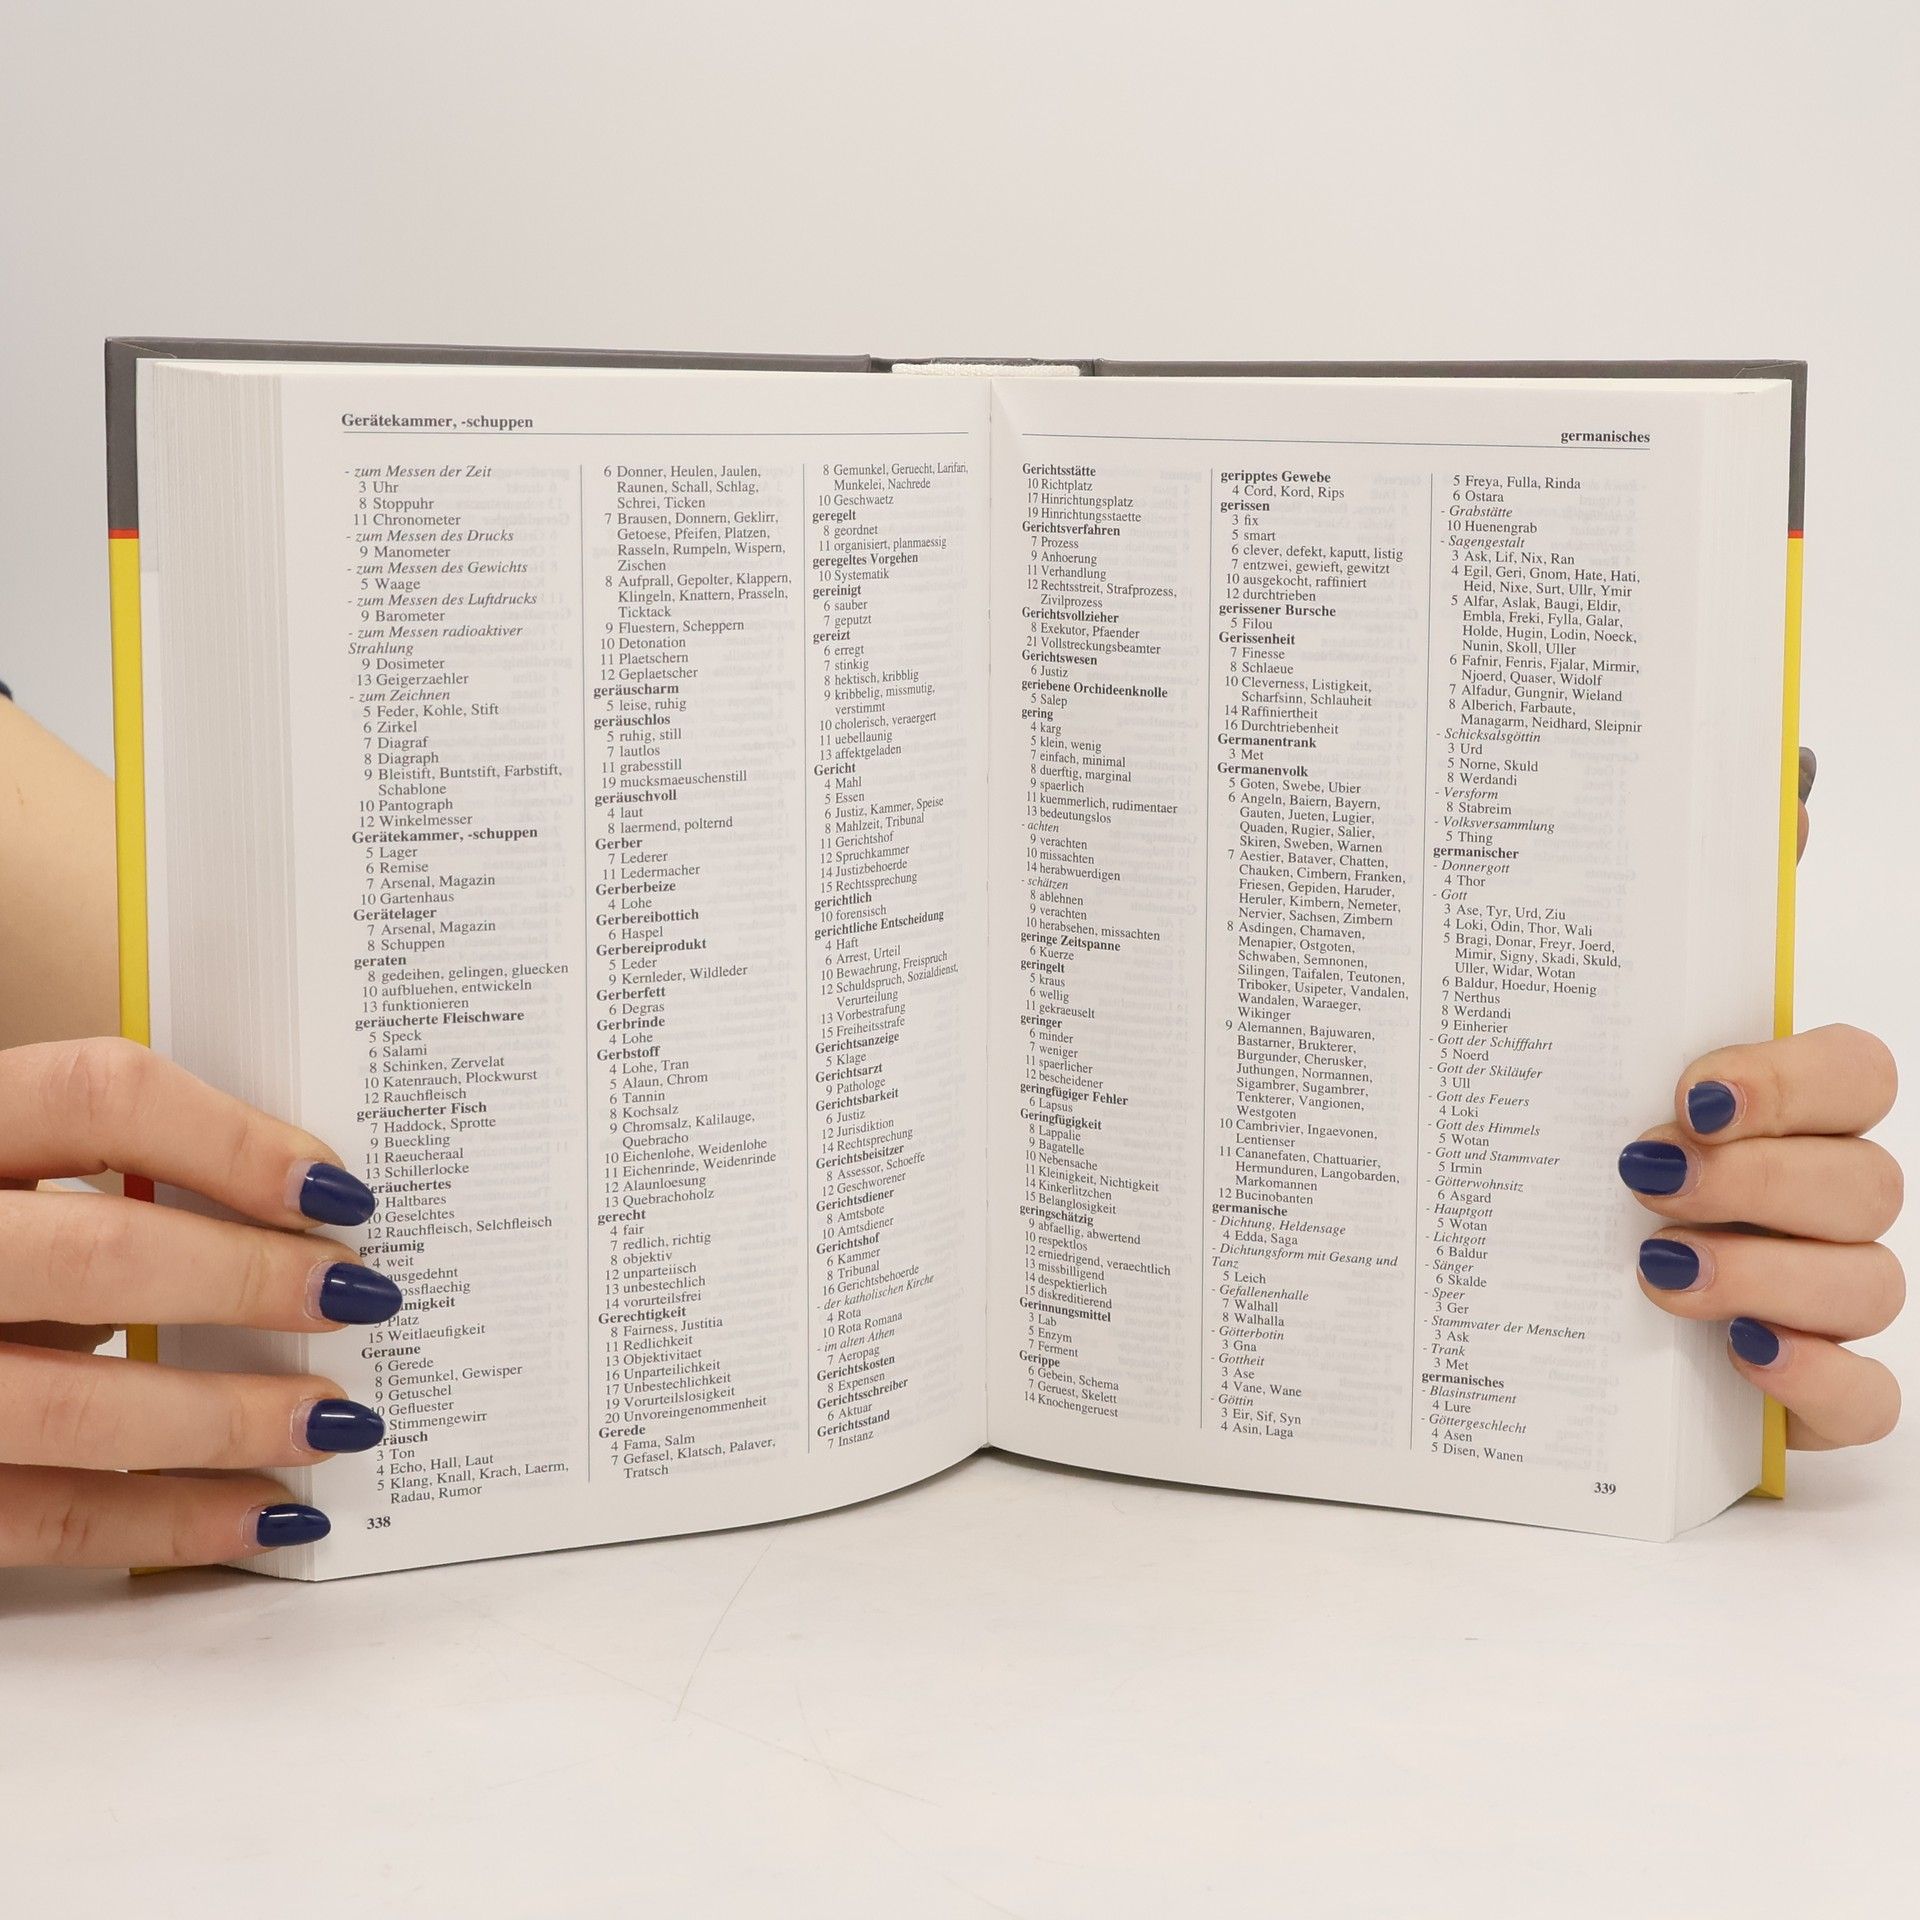 Gerätekammer, -schuppen
- zum Messen der Zeit
3 Uhr
8 Stoppuhr
11 Chronometer
- zum Messen des Drucks
9 Manometer
- zum Messen des Gewichts
5 Waage
- zum Messen des Luftdrucks
9 Barometer
- zum Messen radioaktiver
Strahlung
9 Dosimeter
13 Geigerzaehler
- zum Zeichnen
5 Feder, Kohle, Stift
6 Zirkel
7 Diagraf
8 Diagraph
9 Bleistift, Buntstift, Farbstift,
Schablone
10 Pantograph
12 Winkelmesser
Gerätekammer, -schuppen
5 Lager
6 Remise
7 Arsenal, Magazin
10 Gartenhaus
Gerätelager
7 Arsenal, Magazin
8 Schuppen
geraten
8 gedeihen, gelingen, gluecken
10 aufbluehen, entwickeln
13 funktionieren
geräucherte Fleischware
5 Speck
6 Salami
8 Schinken, Zervelat
10 Katenrauch, Plockwurst
12 Rauchfleisch
geräucherter Fisch
7 Haddock, Sprotte
9 Bueckling
11 Raeucheraal
13 Schillerlocke
eräuchertes
9 Haltbares
10 Geselchtes
12 Rauchfleisch, Selchfleisch
geräumig
4 weit
ausgedehnt
ossflaechig
migkeit
5 Platz
15 Weitlaeufigkeit
Geraune
6 Gerede
8 Gemunkel, Gewisper
9 Getuschel
10 Gefluester
Stimmengewirr
eräusch
3 Ton
4 Echo, Hall, Laut
5 Klang, Knall, Krach, Laerm,
Radau, Rumor
338
6 Donner, Heulen, Jaulen,
Raunen, Schall, Schlag,
Schrei, Ticken
7 Brausen, Donnern, Geklirr,
Getoese, Pfeifen, Platzen,
Rasseln, Rumpeln, Wispern,
Zischen
8 Aufprall, Gepolter, Klappern,
Klingeln, Knattern, Prasseln,
Ticktack
9 Fluestern, Scheppern
10 Detonation
11 Plaetschern
12 Geplaetscher
geräuscharm
5 leise, ruhig
geräuschlos
5 ruhig, still
7 lautlos
11 grabesstill
19 mucksmaeuschenstill
geräuschvoll
4 laut
8 laermend, polternd
Gerber
7 Lederer
11 Ledermacher
Gerberbeize
4 Lohe
Gerbereibottich
6 Haspel
Gerbereiprodukt
5 Leder
9 Kernleder, Wildleder
Gerberfett
6 Degras
Gerbrinde
4 Lohe
Gerbstoff
4 Lohe, Tran
5 Alaun, Chrom
6 Tannin
8 Kochsalz
9 Chromsalz, Kalilauge,
Quebracho
10 Eichenlohe, Weidenlohe
11 Eichenrinde, Weidenrinde
12 Alaunloesung
13 Quebrachoholz
gerecht
4 fair
7 redlich, richtig
8 objektiv
12 unparteiisch
13 unbestechlich
14 vorurteilsfrei
Gerechtigkeit
8 Fairness, Justitia
11 Redlichkeit
13 Objektivitaet
16 Unparteilichkeit
17 Unbestechlichkeit
19 Vorurteilslosigkeit
20 Unvoreingenommenheit
Gerede
4 Fama, Salm
7 Gefasel, Klatsch, Palaver,
Tratsch
8 Gemunkel, Geruecht, Larifari,
Munkelei, Nachrede
10 Geschwaetz
geregelt
8 geordnet
11 organisiert, planmaessig
geregeltes Vorgehen
10 Systematik
gereinigt
6 sauber
7 geputzt
gereizt
6 erregt
7 stinkig
8 hektisch, kribblig
9 kribbelig, missmutig,
verstimmt
10 cholerisch, veraergert
11 uebellaunig
13 affektgeladen
Gericht
4 Mahl
5 Essen
6 Justiz, Kammer, Speise
8 Mahlzeit, Tribunal
11 Gerichtshof
12 Spruchkammer
14 Justizbehoerde
15 Rechtssprechung
gerichtlich
10 forensisch
gerichtliche Entscheidung
4 Haft
6 Arrest, Urteil
10 Bewaehrung, Freispruch
12 Schuldspruch, Sozialdienst,
Verurteilung
13 Vorbestrafung
15 Freiheitsstrafe
Gerichtsanzeige
5 Klage
Gerichtsarzt
9 Pathologe
Gerichtsbarkeit
6 Justiz
12 Jurisdiktion
14 Rechtsprechung
Gerichtsbeisitzer
8 Assessor, Schoeffe
12 Geschworener
Gerichtsdiener
8 Amtsbote
10 Amtsdiener
Gerichtshof
6 Kammer
8 Tribunal
16 Gerichtsbehoerde
- der katholischen Kirche
4 Rota
10 Rota Romana
- im alten Athen
7 Aeropag
Gerichtskosten
8 Expensen
Gerichtsschreiber
6 Aktuar
Gerichtsstand
7 Instanz
germanisches
Gerichtsstätte
10 Richtplatz
17 Hinrichtungsplatz
19 Hinrichtungsstaette
Gerichtsverfahren
7 Prozess
9 Anhoerung
11 Verhandlung
12 Rechtsstreit, Strafprozess,
Zivilprozess
Gerichtsvollzieher
8 Exekutor, Pfaender
21 Vollstreckungsbeamter
Gerichtswesen
6 Justiz
geriebene Orchideenknolle
5 Salep
gering
4 karg
5 klein, wenig
7 einfach, minimal
8 duerftig, marginal
9 spaerlich
11 kuemmerlich, rudimentaer
13 bedeutungslos
- achten
9 verachten
10 missachten
14 herabwuerdigen
- schätzen
8 ablehnen
9 verachten
10 herabsehen, missachten
geringe Zeitspanne
6 Kuerze
geringelt
5 kraus
6 wellig
11 gekraeuselt
geringer
6 minder
7 weniger
11 spaerlicher
12 bescheidener
geringfügiger Fehler
6 Lapsus
Geringfügigkeit
8 Lappalie
9 Bagatelle
10 Nebensache
11 Kleinigkeit, Nichtigkeit
14 Kinkerlitzchen
15 Belanglosigkeit
geringschätzig
9 abfaellig, abwertend
10 respektlos
12 erniedrigend, veraechtlich
13 missbilligend
14 despektierlich
15 diskreditierend
Gerinnungsmittel
3 Lab
5 Enzym
7 Ferment
Gerippe
6 Gebein, Schema
7 Geruest, Skelett
14 Knochengeruest
geripptes Gewebe
4 Cord, Kord, Rips
gerissen
3 fix
5 smart
6 clever, defekt, kaputt, listig
7 entzwei, gewieft, gewitzt
10 ausgekocht, raffiniert
12 durchtrieben
gerissener Bursche
5 Filou
Gerissenheit
7 Finesse
8 Schlaeue
10 Cleverness, Listigkeit,
Scharfsinn, Schlauheit
14 Raffiniertheit
16 Durchtriebenheit
Germanentrank
3 Met
Germanenvolk
5 Goten, Swebe, Ubier
6 Angeln, Baiern, Bayern,
Gauten, Jueten, Lugier,
Quaden, Rugier, Salier,
Skiren, Sweben, Warnen
7 Aestier, Bataver, Chatten,
Chauken, Cimbern, Franken,
Friesen, Gepiden, Haruder,
Heruler, Kimbern, Nemeter,
Nervier, Sachsen, Zimbern
8 Asdingen, Chamaven,
Menapier, Ostgoten,
Schwaben, Semnonen,
Silingen, Taifalen, Teutonen,
Triboker, Usipeter, Vandalen,
Wandalen, Waraeger,
Wikinger
9 Alemannen, Bajuwaren,
Bastarner, Brukterer,
Burgunder, Cherusker,
Juthungen, Normannen,
Sigambrer, Sugambrer,
Tenkterer, Vangionen,
Westgoten
10 Cambrivier, Ingaevonen,
Lentienser
11 Cananefaten, Chattuarier,
Hermunduren, Langobarden,
Markomannen
12 Bucinobanten
germanische
- Dichtung, Heldensage
4 Edda, Saga
- Dichtungsform mit Gesang und
Tanz
5 Leich
- Gefallenenhalle
7 Walhall
8 Walhalla
- Götterbotin
3 Gna
- Gottheit
3 Ase
4 Vane, Wane
- Göttin
3 Eir, Sif, Syn
4 Asin, Laga
5 Freya, Fulla, Rinda
6 Ostara
- Grabstätte
10 Huenengrab
- Sagengestalt
3 Ask, Lif, Nix, Ran
4 Egil, Geri, Gnom, Hate, Hati,
Heid, Nixe, Surt, Ullr, Ymir
5 Alfar, Aslak, Baugi, Eldir,
Embla, Freki, Fylla, Galar,
Holde, Hugin, Lodin, Noeck,
Nunin, Skoll, Uller
6 Fafnir, Fenris, Fjalar, Mirmir,
Njoerd, Quaser, Widolf
7 Alfadur, Gungnir, Wieland
8 Alberich, Farbaute,
Managarm, Neidhard, Sleipnir
- Schicksalsgöttin
3 Urd
5 Norne, Skuld
8 Werdandi
- Versform
8 Stabreim
- Volksversammlung
5 Thing
germanischer
- Donnergott
4 Thor
- Gott
3 Ase, Tyr, Urd, Ziu
4 Loki, Odin, Thor, Wali
5 Bragi, Donar, Freyr, Joerd,
Mimir, Signy, Skadi, Skuld,
Uller, Widar, Wotan
6 Baldur, Hoedur, Hoenig
7 Nerthus
8 Werdandi
9 Einherier
- Gott der Schifffahrt
5 Noerd
- Gott der Skiläufer
3 Ull
- Gott des Feuers
4 Loki
- Gott des Himmels
5 Wotan
- Gott und Stammvater
5 Irmin
- Götterwohnsitz
6 Asgard
- Hauptgott
5 Wotan
- Lichtgott
6 Baldur
- Sänger
6 Skalde
- Speer
3 Ger
- Stammvater der Menschen
3 Ask
- Trank
3 Met
germanisches
- Blasinstrument
4 Lure
- Göttergeschlecht
4 Asen
5 Disen, Wanen
339